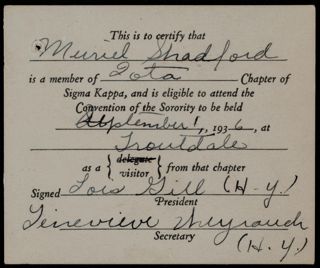 This is to certify that
Muriel Shadford
is a member of Iota Chapter of
Sigma Kappa, and is eligible to attend the
Convention of the Sorority to be held
September 1, 1936, at
Troutdale
as a { delegate visitor } from that chapter
Signed Lois Gill (H-y.)
President
Genevieve Weyrauch
Secretary
(H. y.)